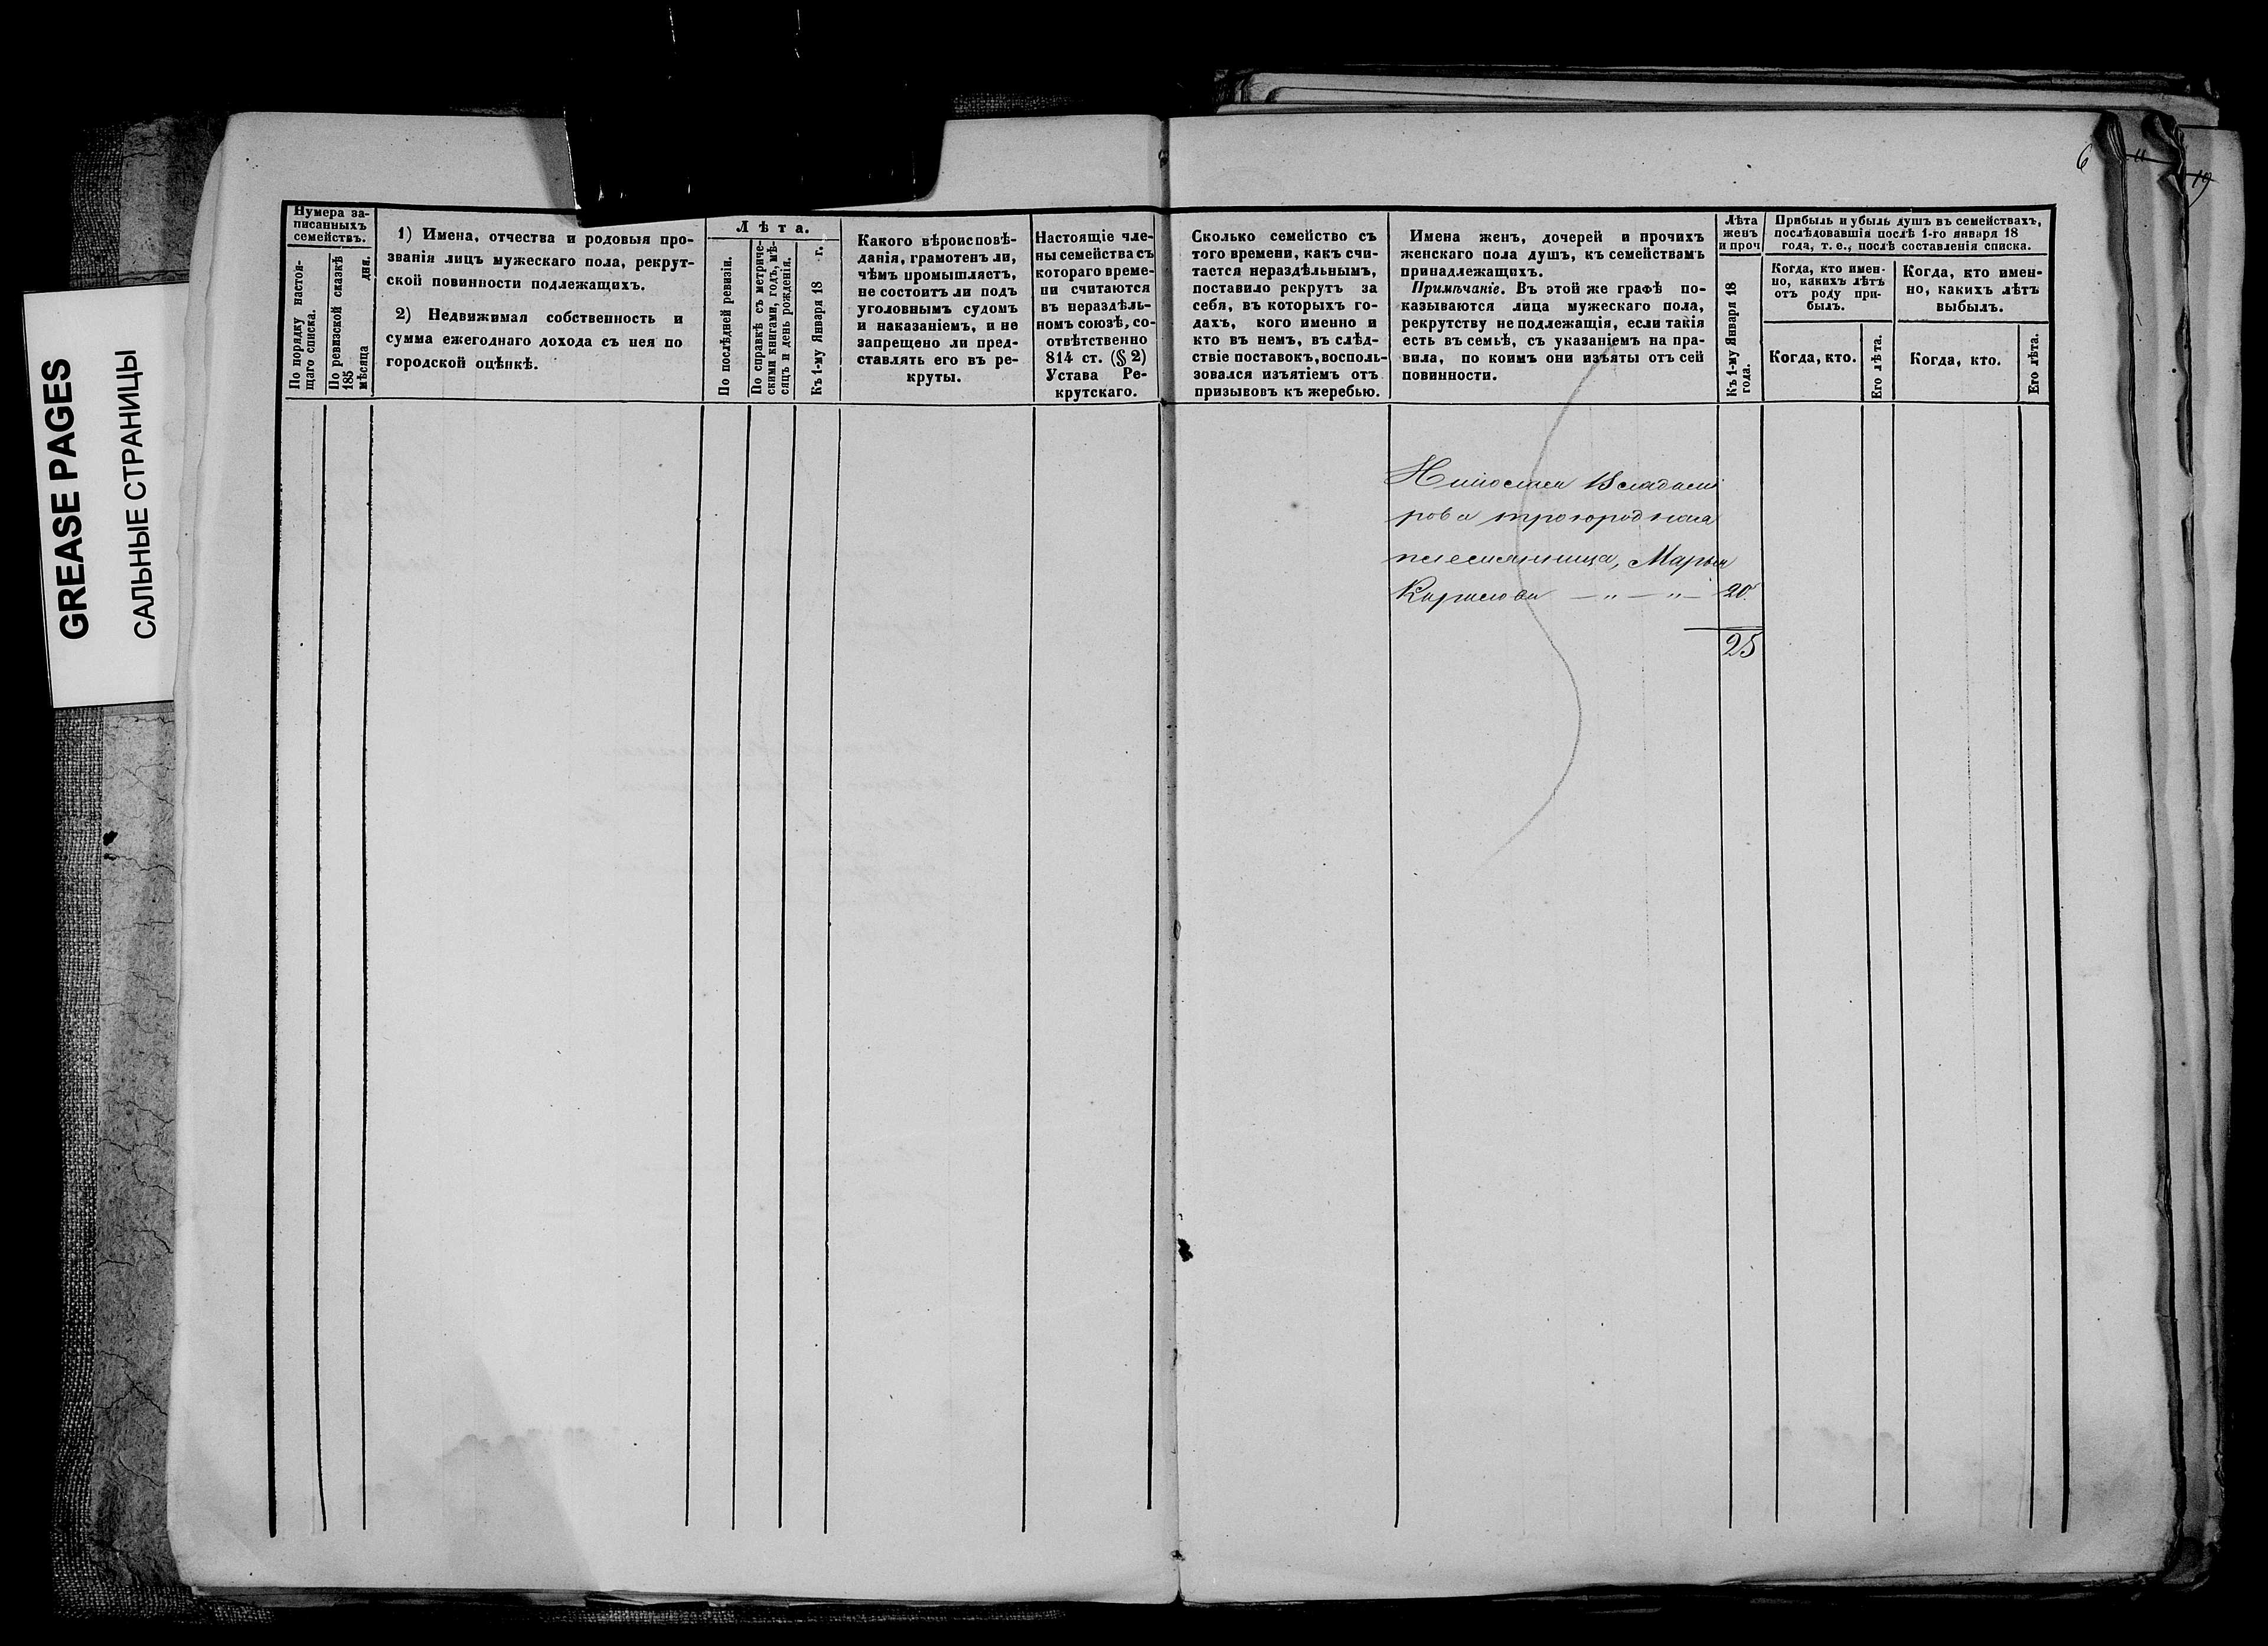 GREASE PAGES
САЛЬНЫЕ СТРАНИЦЫ
6
19
Нумера за-
писанныхъ
семействъ.
По порядку настоя-
щаго списка.
По ревизской сказкѣ
185
мѣсяца дня.
1) Имена, отчества и родовыя про-
званія лицъ мужескаго пола, рекрут-
ской повинности подлежащихъ.
2) Недвижимая собственность и
сумма ежегоднаго дохода съ нея по
городской оцѣнкѣ.
Лѣта.
По послѣдней ревизіи.
По справкѣ съ метриче-
скими книгами, годъ, мѣ-
сяцъ и день рожденія.
Къ 1-му Января 18 г.
Какого вѣроисповѣ-
данія, грамотенъ ли,
чѣмъ промышляетъ,
не состоитъ ли подъ
уголовнымъ судомъ
и наказаніемъ, и не
запрещено ли пред-
ставлять его въ ре-
круты.
Настоящіе чле-
ны семейства съ
котораго време-
ни считаются
въ нераздѣль-
номъ союзѣ, со-
отвѣтственно
814 ст. (§ 2)
Устава Ре-
крутскаго.
Сколько семейство съ
того времени, какъ счи-
тается нераздѣльнымъ,
поставило рекрутъ за
себя, въ которыхъ го-
дахъ, кого именно и
кто въ немъ, въ слѣд-
ствіе поставокъ, восполь-
зовался изъятіемъ отъ
призывовъ къ жеребью.
Имена женъ, дочерей и прочихъ
женскаго пола душъ, къ семействамъ
принадлежащихъ.
Примѣчаніе. Въ этой же графѣ по-
казываются лица мужескаго пола,
рекрутству не подлежащія, если такія
есть въ семьѣ, съ указаніемъ на пра-
вила, по коимъ они изъяты отъ сей
повинности.
Лѣта
женъ
и проч
Къ 1-му Января 18
года.
Прибыль и убыль душъ въ семействахъ,
послѣдовавшія послѣ 1-го января 18
года, т. е., послѣ составленія списка.
Когда, кто имен-
но, какихъ лѣтъ
отъ роду при-
былъ.
Когда, кто.
Его лѣта.
Когда, кто имен-
но, какихъ лѣтъ
выбылъ.
Когда, кто.
Его лѣта.
Владими
рова троюродная
племянница, Марья
Карпова — „ — „ — 20
25